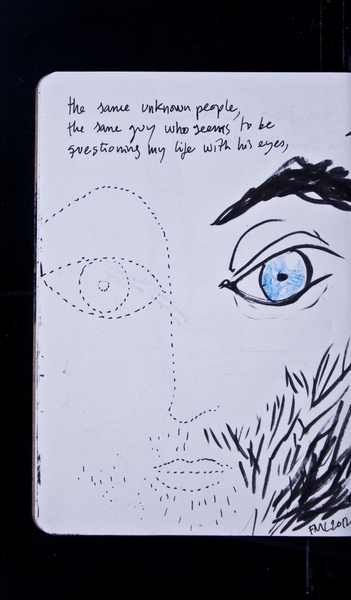 the same unknown people,
the same guy who seems to be
questioning my life with his eyes,
FML2012